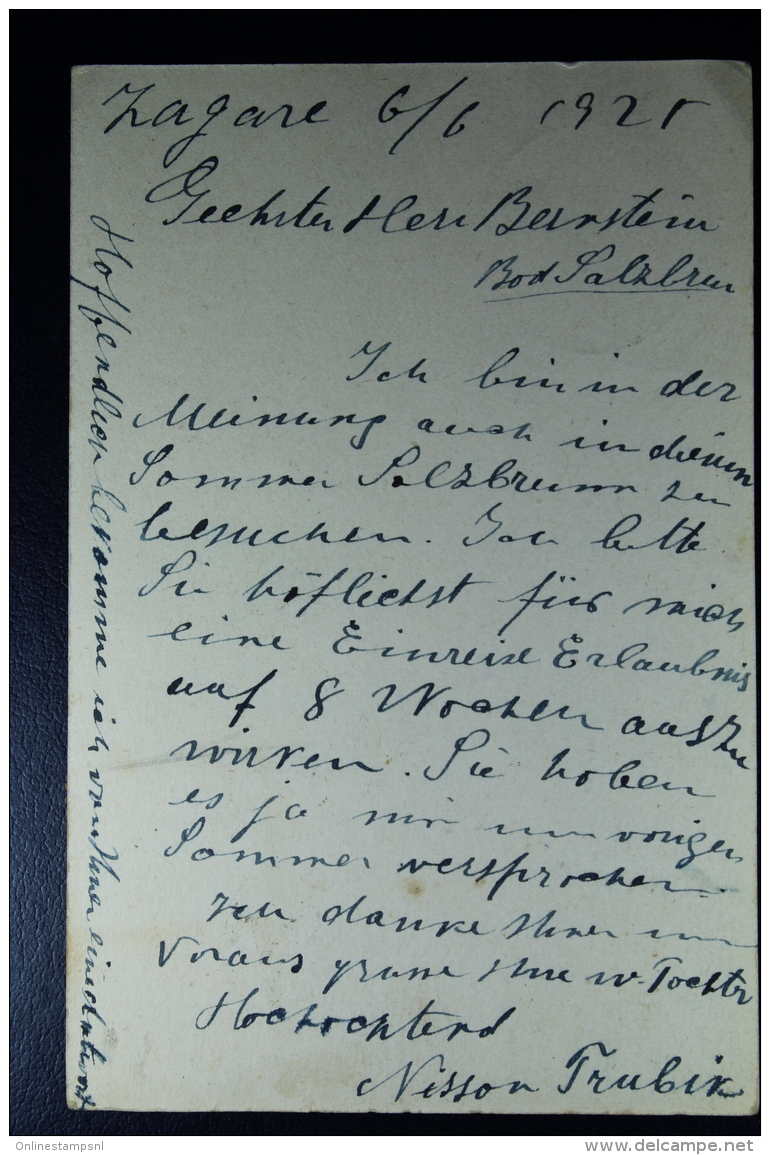 Zagare 6/6 1921
Geehrter Herr Bernstein
Bad Salzbrun
Ich bin in der
Meinung auch in diesem
Sommer Salzbrunn zu
besuchen. Ich bitte
Sie höflichst für mich
eine Einreise Erlaubnis
auf 8 Wochen aus zu
wirken. Sie haben
es ja mir im vorigen
Sommer versprochen.
Ich danke Ihnen im
Voraus grüsse Ihre w. Tochter
Hochachtend
Nisson Trubik
Hoffendlich bekomme ich von Ihnen eine Antwort
Onlinestampsnl
http://www.delcampe.net